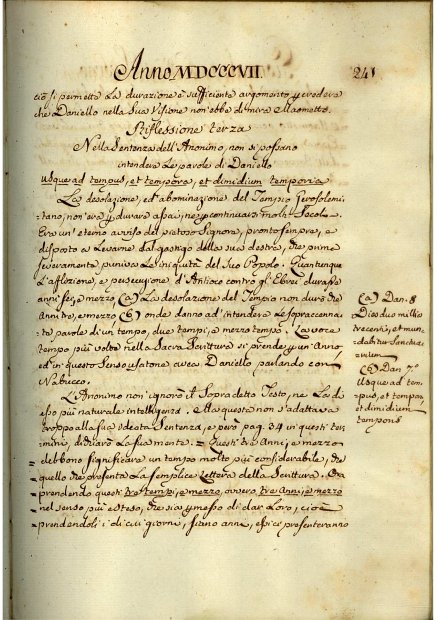 Anno MDCCCVII. 241
ciò si permetta la durazione è sufficiente argomento p credere
che Daniello nella Sua Visione non ebbe di mira Maometto.
Riflessione terza
Nella Sentenza dell'Anonimo, non si possono
intendere le parole di Daniello
Usque ad tempus, et tempora, et dimidium temporis
La desolazione, ed abominazione del Tempio Gerosolemi-
tano, non era p durare assai, ne p continuarsi molti Secoli.
Era un' eterno avviso del pietoso Signore, pronto sempre, e
disposto a levarne dal gastigo della sua destra, che prima
severamente puniva le iniquità del Suo Popolo. Quantunque
l'afflizione, e persecuzione d'Antioco contro gl'Ebrei durasse
anni sei, e mezzo, (a) La desolazione del Tempio non durò che
Anni tre, e mezzo (b) onde danno ad intendere le sopraccenna-
te parole di un tempo, due tempi, e mezzo tempo. La voce
tempo più volte nella Sacra Scrittura si prende p un' Anno,
ed in questo Senso usatone avea Daniello parlando con
Nabucco.
L'Anonimo non ignorò il Sopradetto Testo, ne La di
esso più naturale intelligenza. Ma questa non s'adattava
troppo alla sua ideata Sentenza, e però pag. 54 in questi ter-
mini, dichiarò la sua mente. = Questi tre Anni, e mezzo
= debbono significare un tempo molto più considerabile, che
= quello che presenta la semplice lettera della Scrittura. Ora
= prendendo questi tre tempi, e mezzo, ovvero tre anni, e mezzo
= nel senso più esteso, che sia p messo di dar loro, cioè
= prendendoli i di cui giorni, siano anni, essi ci presenteranno
(a) Dan. 8
Dies duo millia
trecenti, et mun-
dabitur Sanctua-
rium
(b) Dan 7.
Usque ad tem-
pus, et tempora,
et dimidium
temporis